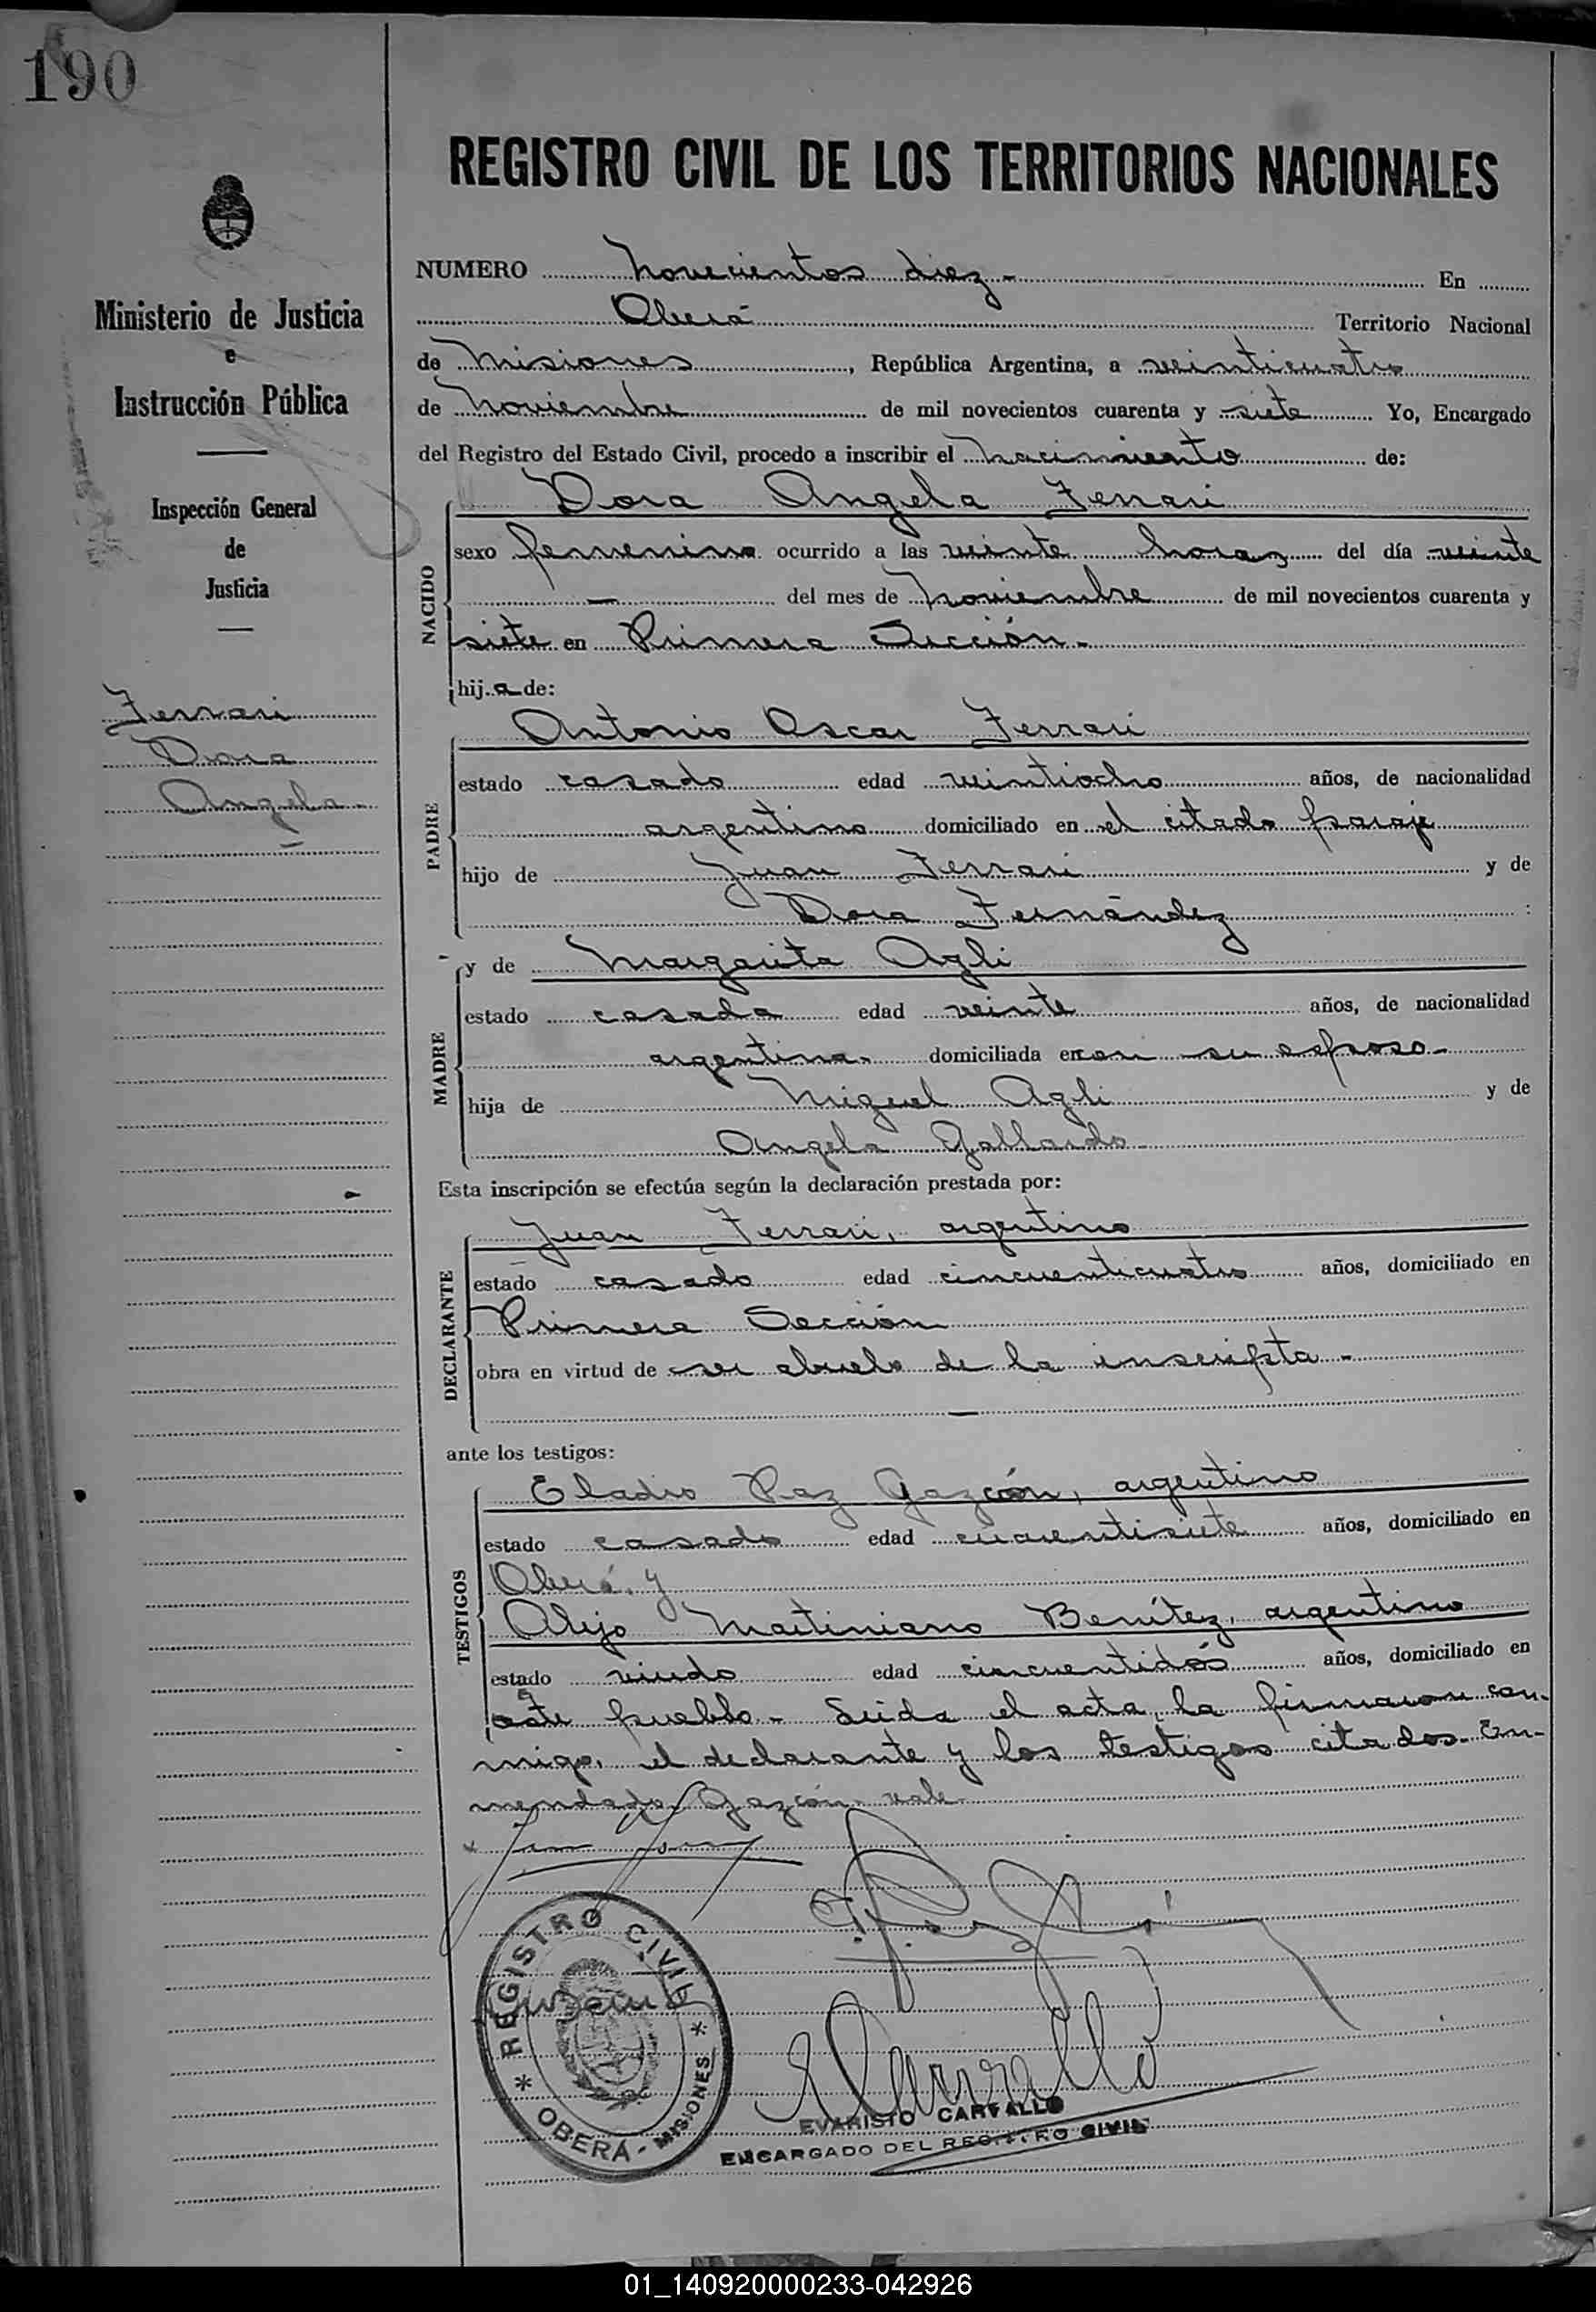 190
REGISTRO CIVIL DE LOS TERRITORIOS NACIONALES
Ministerio de Justicia
e
Instrucción Pública
Inspección General
de
Justicia
Ferrari
Dora
Angela
NUMERO Novecientos diez - En
Oberá Territorio Nacional
de Misiones, República Argentina, a veinticuatro
de Noviembre de mil novecientos cuarenta y siete Yo, Encargado
del Registro del Estado Civil, procedo a inscribir el nacimiento de:
NACIDO
Dora Angela Ferrari
sexo femenino ocurrido a las veinte horas del día veinte
- del mes de Noviembre de mil novecientos cuarenta y
siete en Primera Sección -
hij a de:
PADRE
Antonio Oscar Ferrari
estado casado edad veintiocho años, de nacionalidad
argentino domiciliado en el citado paraje
hijo de Juan Ferrari y de
Dora Fernández :
MADRE
y de Margarita Agli
estado casada edad veinte años, de nacionalidad
argentina domiciliada en con su esposo -
hija de Miguel Agli y de
Angela Gallardo
Esta inscripción se efectúa según la declaración prestada por:
DECLARANTE
Juan Ferrari, argentino
estado casado edad cincuenticuatro años, domiciliado en
Primera Sección
obra en virtud de ser abuelo de la inscripta -
ante los testigos:
TESTIGOS
Eladio Paz Gazcón, argentino
estado casado edad cuarentisiete años, domiciliado en
Oberá, y
Alejo Martiniano Benítez, argentino
estado viudo edad cincuentidós años, domiciliado en
este pueblo - Leida el acta, la firmaron con-
migo, el declarante y los testigos citados. En-
mendado Gazcón - vale
REGISTRO CIVIL
* OBERÁ - MISIONES *
EVARISTO CARVALLO
ENCARGADO DEL REGISTRO CIVIL
01_140920000233-042926